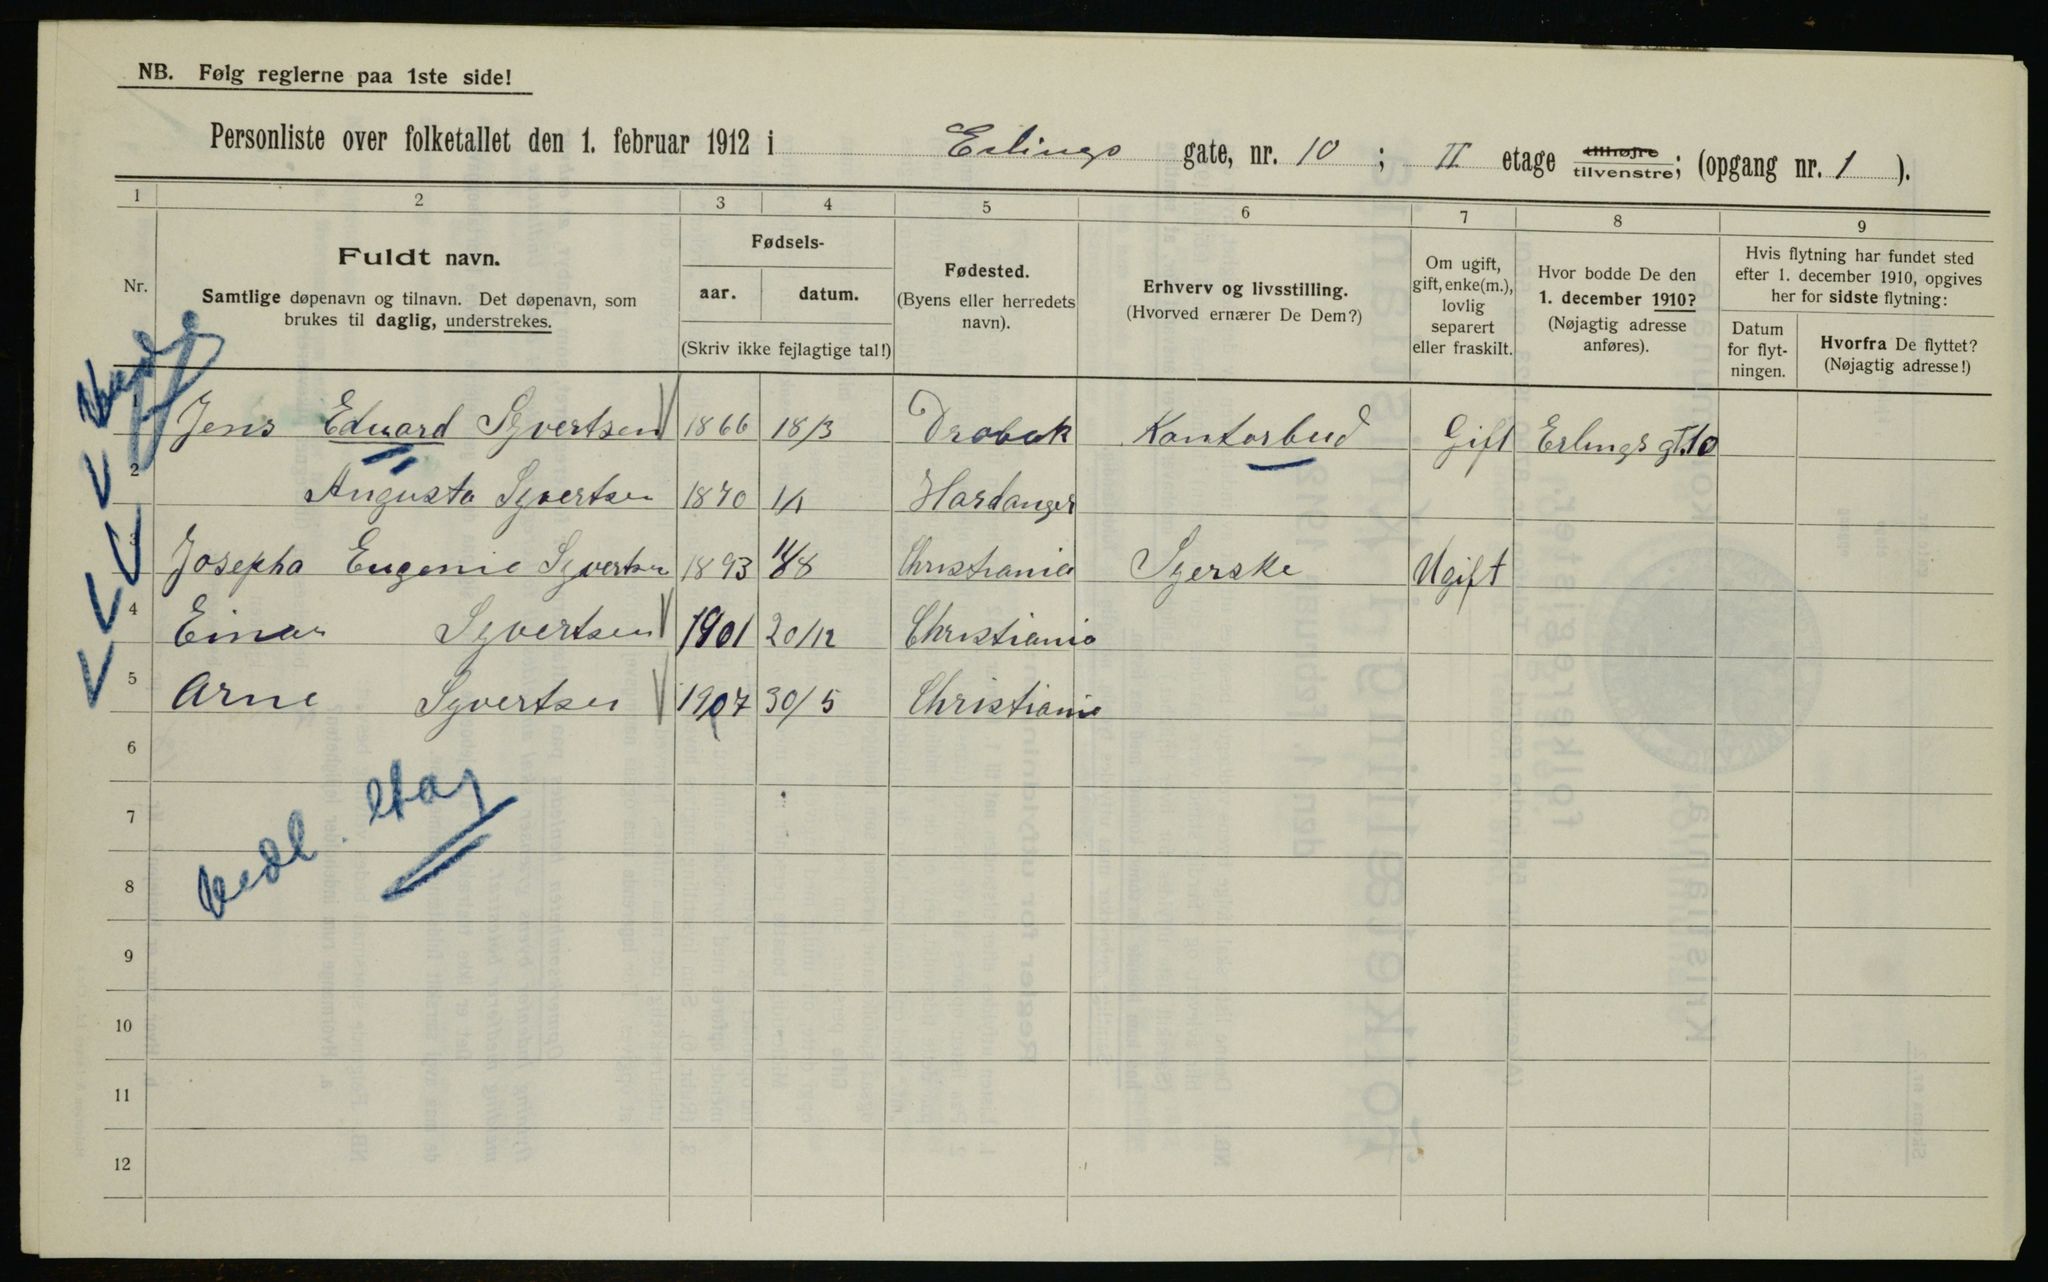 NB. Følg reglerne paa 1ste side!
Personliste over folketallet den 1. februar 1912 i Erlings gate, nr. 10 ; II etage tilhøjre tilvenstre; (opgang nr. 1 ).
1 2 3 4 5 6 7 8 9
Nr.
Fuldt navn.
Samtlige døpenavn og tilnavn. Det døpenavn, som
brukes til daglig, understrekes.
Fødsels-
aar. datum.
(Skriv ikke fejlagtige tal!)
Fødested.
(Byens eller herredets
navn).
Erhverv og livsstilling.
(Hvorved ernærer De Dem?)
Om ugift,
gift, enke(m.),
lovlig
separert
eller fraskilt.
Hvor bodde De den
1. december 1910?
(Nøjagtig adresse
anføres).
Hvis flytning har fundet sted
efter 1. december 1910, opgives
her for sidste flytning:
Datum
for flyt-
ningen.
Hvorfra De flyttet?
(Nøjagtig adresse!)
1 Jens Edvard Syvertsen 1866 18/3 Drobak Kontorbud Gift Erlings gt. 10
2 Augusta Syvertsen 1870 1/1 Hardanger
3 Josepha Eugenie Syvertsen 1893 11/8 Christiania Syerske Ugift
4 Einar Syvertsen 1901 20/12 Christiania
5 Arne Syvertsen 1907 30/5 Christiania
6
7
vedl. etag
8
9
10
11
12